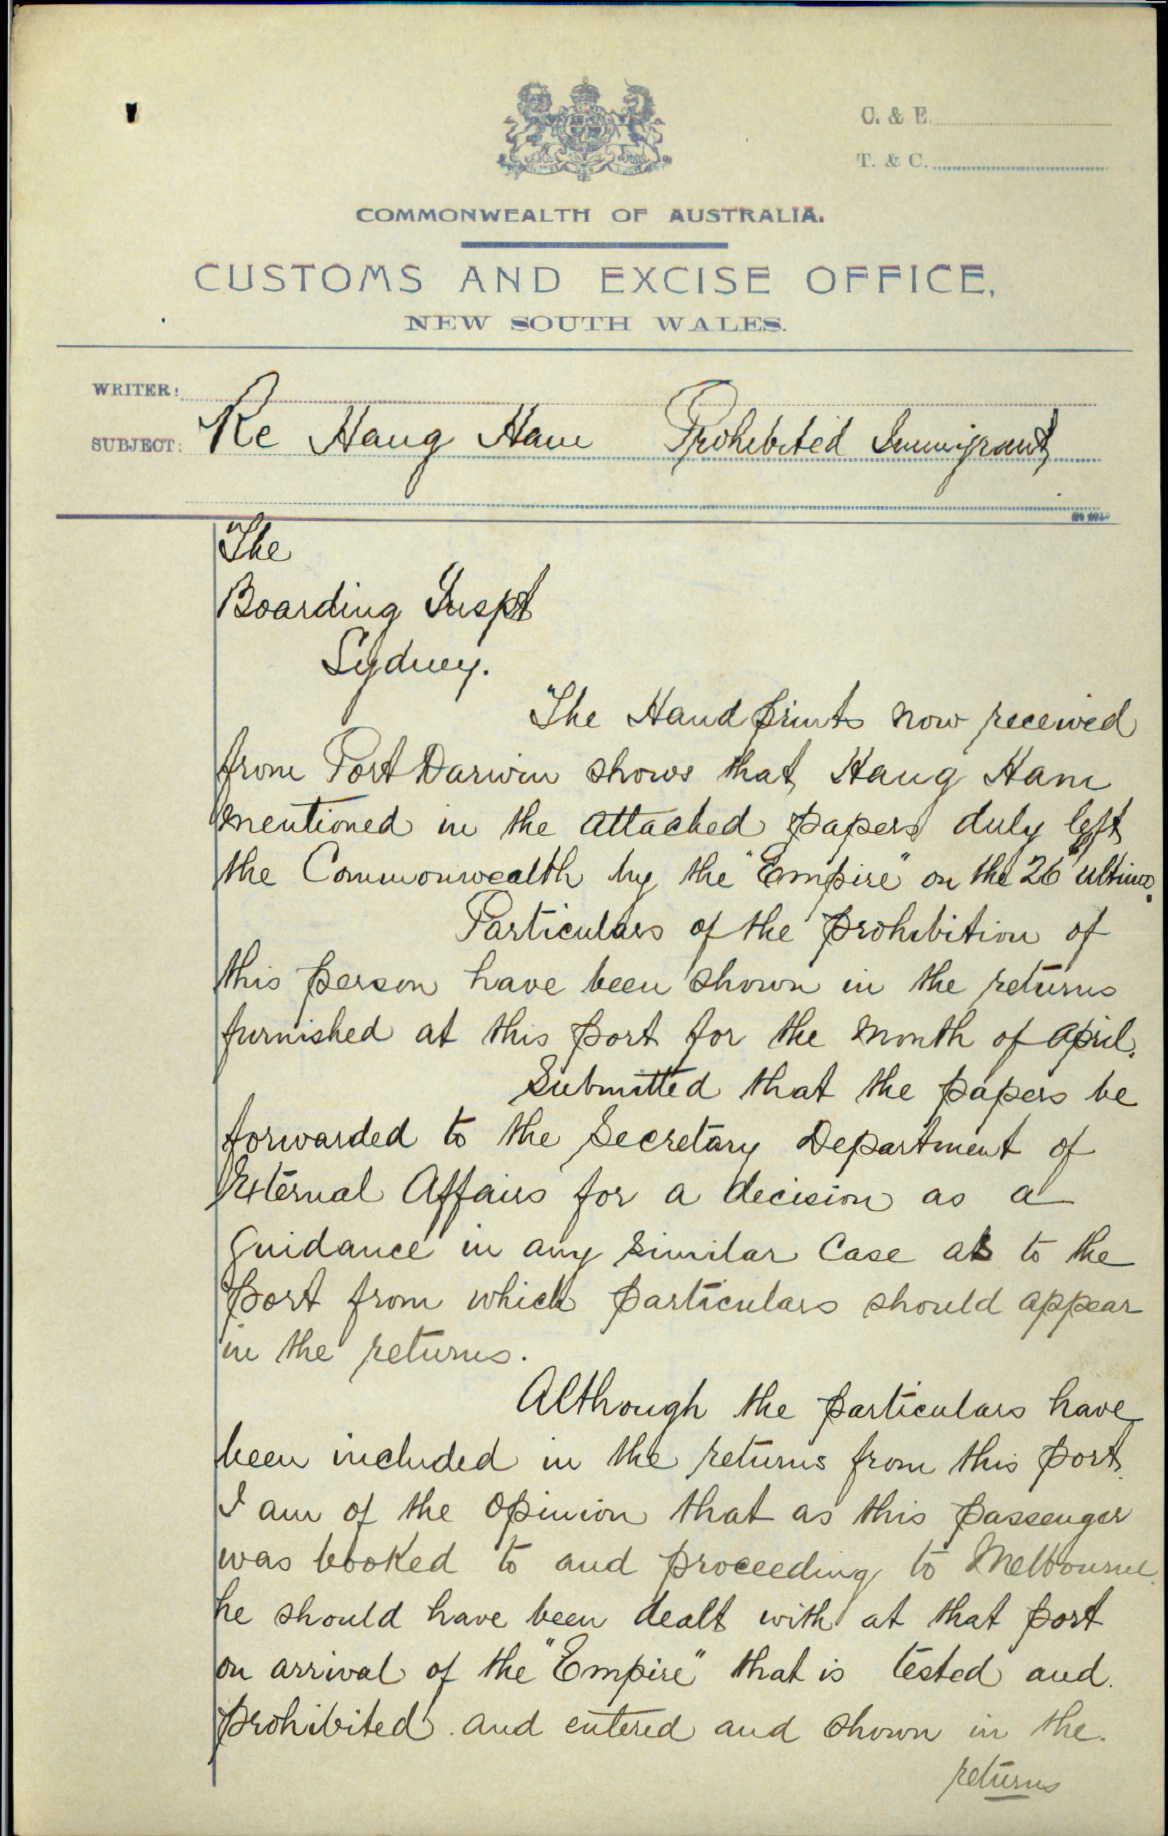 C. & E.
T. & C.
COMMONWEALTH OF AUSTRALIA.
CUSTOMS AND EXCISE OFFICE,
NEW SOUTH WALES.
WRITER:
SUBJECT: Re Hang Ham Prohibited Immigrant
The
Boarding Inspt
Sydney.
The Hand prints now received
from Port Darwin shows that Hang Ham
mentioned in the attached papers duly left
the Commonwealth by the "Empire" on the 26th ultimo.
Particulars of the prohibition of
this person have been shown in the returns
furnished at this port for the month of April.
Submitted that the papers be
forwarded to the Secretary Department of
External Affairs for a decision as a
guidance in any similar case as to the
port from which particulars should appear
in the returns.
Although the particulars have
been included in the returns from this port
I am of the opinion that as this passenger
was booked to and proceeding to Melbourne
he should have been dealt with at that port
on arrival of the "Empire" that is tested and
prohibited and entered and shown in the
returns